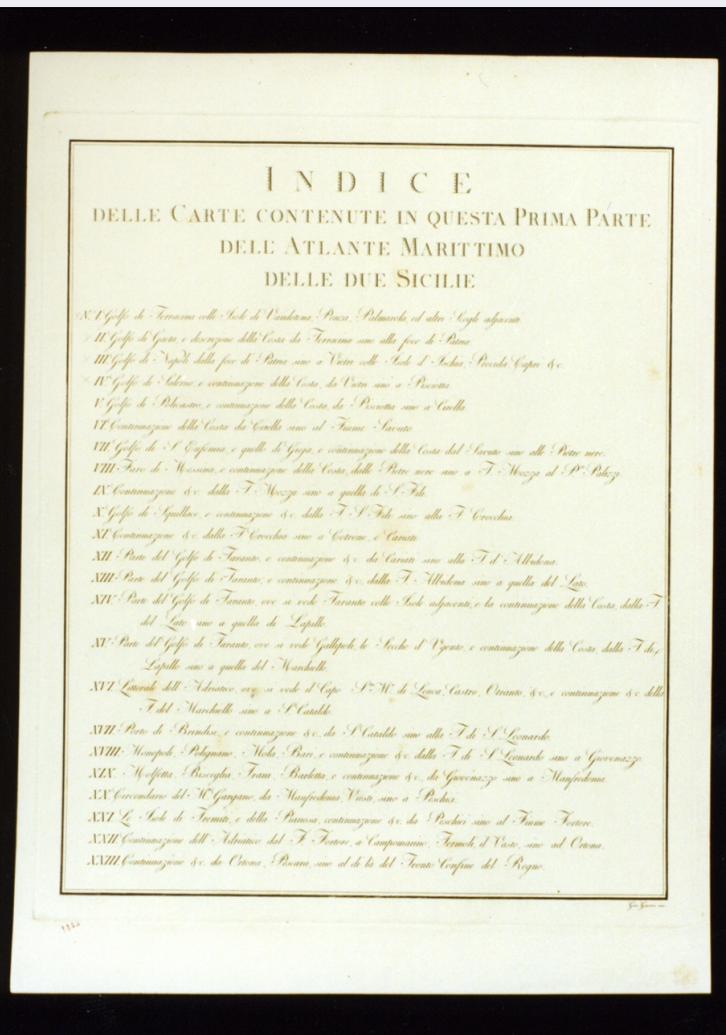 INDICE
DELLE CARTE CONTENUTE IN QUESTA PRIMA PARTE
DELL' ATLANTE MARITTIMO
DELLE DUE SICILIE
N.° I. Golfo di Terracina colle Isole di Vandotena, Ponza, Palmarola, ed altri Scogli adjacenti.
II. Golfo di Gaeta, e descrizione della Costa da Terracina sino alla foce di Patria.
III. Golfo di Napoli dalla foce di Patria sino a Vietri colle Isole d'Ischia, Procida, Capri &c.
IV. Golfo di Salerno, e continuazione della Costa, da Vietri sino a Pisciotta.
V. Golfo di Policastro, e continuazione della Costa, da Pisciotta sino a Cirella.
VI. Continuazione della Costa da Cirella sino al Fiume Savuto.
VII. Golfo di S. Eufemia, e quello di Gioja, e continuazione della Costa dal Savuto sino alle Pietre nere.
VIII. Faro di Messina, e continuazione della Costa, dalle Pietre nere sino a T. Mozza al P.° Palizzi.
IX. Continuazione &c. dalla T. Mozza sino a quella di S. Fili.
X. Golfo di Squillace, e continuazione &c. dalla T. S. Fili sino alla T. Crocchia.
XI. Continuazione &c. dalla T. Crocchia sino a Cotrone, e Cariati.
XII. Parte del Golfo di Taranto, e continuazione &c. da Cariati sino alla T. d'Albidona.
XIII. Parte del Golfo di Taranto, e continuazione &c. dalla T. Albidona sino a quella del Lato.
XIV. Parte del Golfo di Taranto, ove si vede Taranto colle Isole adjacenti, e la continuazione della Costa, dalla T.
del Lato sino a quella di Lapillo.
XV. Parte del Golfo di Taranto, ove si vede Gallipoli, le Secche d'Ugento, e continuazione della Costa, dalla T. di
Lapillo sino a quella del Marchiello.
XVI. Littorale dell'Adriatico, ove si vede il Capo S.ª M.ª di Leuca, Castro, Otranto, &c., e continuazione &c. della
T. del Marchiello sino a S. Cataldo.
XVII. Porto di Brindisi, e continuazione &c. da S. Cataldo sino alla T. di S. Leonardo.
XVIII. Monopoli, Polignano, Mola, Bari, e continuazione &c. dalla T. di S. Leonardo sino a Giovenazzo.
XIX. Molfetta, Bisceglia, Trani, Barletta, e continuazione &c. da Giovenazzo sino a Manfredonia.
XX. Circondario del M.te Gargano, da Manfredonia, Viesti, sino a Peschici.
XXI. Le Isole di Tremiti, e della Pianosa, continuazione &c. da Peschici sino al Fiume Fortore.
XXII. Continuazione dell'Adriatico dal F. Fortore, a Campomarino, Termoli, il Vasto, sino ad Ortona.
XXIII. Continuazione &c. da Ortona, Pescara, sino al di là del Tronto Confine del Regno.